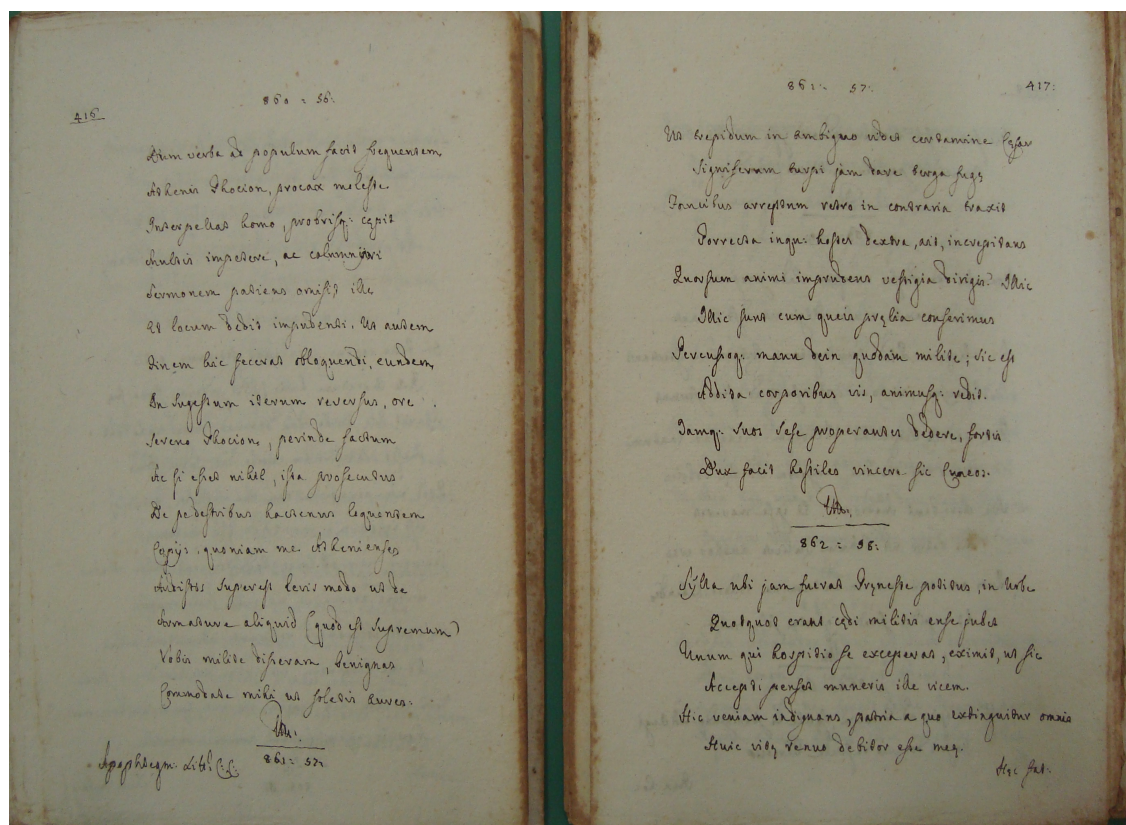 416
860 : 56:
Dum verba ad populum facit sequentem
Athenis Phocion, procax moleste
Interpellat homo, probrisq: cępit
Multis impetere, ac calumniari
Sermonem patiens omisit ille
Et locum dedit impudenti. Ut autem
Finem hic fecerat obloquendi, eundem
In sugestum iterum reversus, ore
Sereno Phocion, perinde factum
Ac si esset nihil, ista prosecutus
De pedestribus hactenus loquentem
Copijs quoniam me Athenienses
Audistis superest levis modo ut de
Armature aliquid (quod est supremum)
Vobis milite disseram, benignas
Commodate mihi ut soletis aures.
861: 57:
Apophtegm: Lib:
861: 57: 417:
Ut trepidum in ambiguo videt certamine Cęsar
Signiferum turpi jam dare terga fugę
Faucibus arreptum retro in contraria traxit
Porrecta inqu: hostes dextra, ait, increpitans
Quorsum animi imprudens vestigia dirigis? Illic
Illic sunt cum queis pręlia conserimus
Percussoq: manu dein quodam milite; sic est
Addita corporibus vis, animusq: redit.
Jamq: suos sese properantes dedere, fortis
Dux facit hostiles vincere sic cuneos.
862 : 58:
Sylla ubi jam fuerat Pręneste potitus, in Urbe
Quotquot erant cędi militis ense jubet
Unum qui hospitio se exceperat, eximit, ut sic
Accepti penset muneris ille vicem.
Hic veniam indignans, patria a quo extinguitur omnis
Huic vitę renuo debitor esse meę.
Hęc fat: